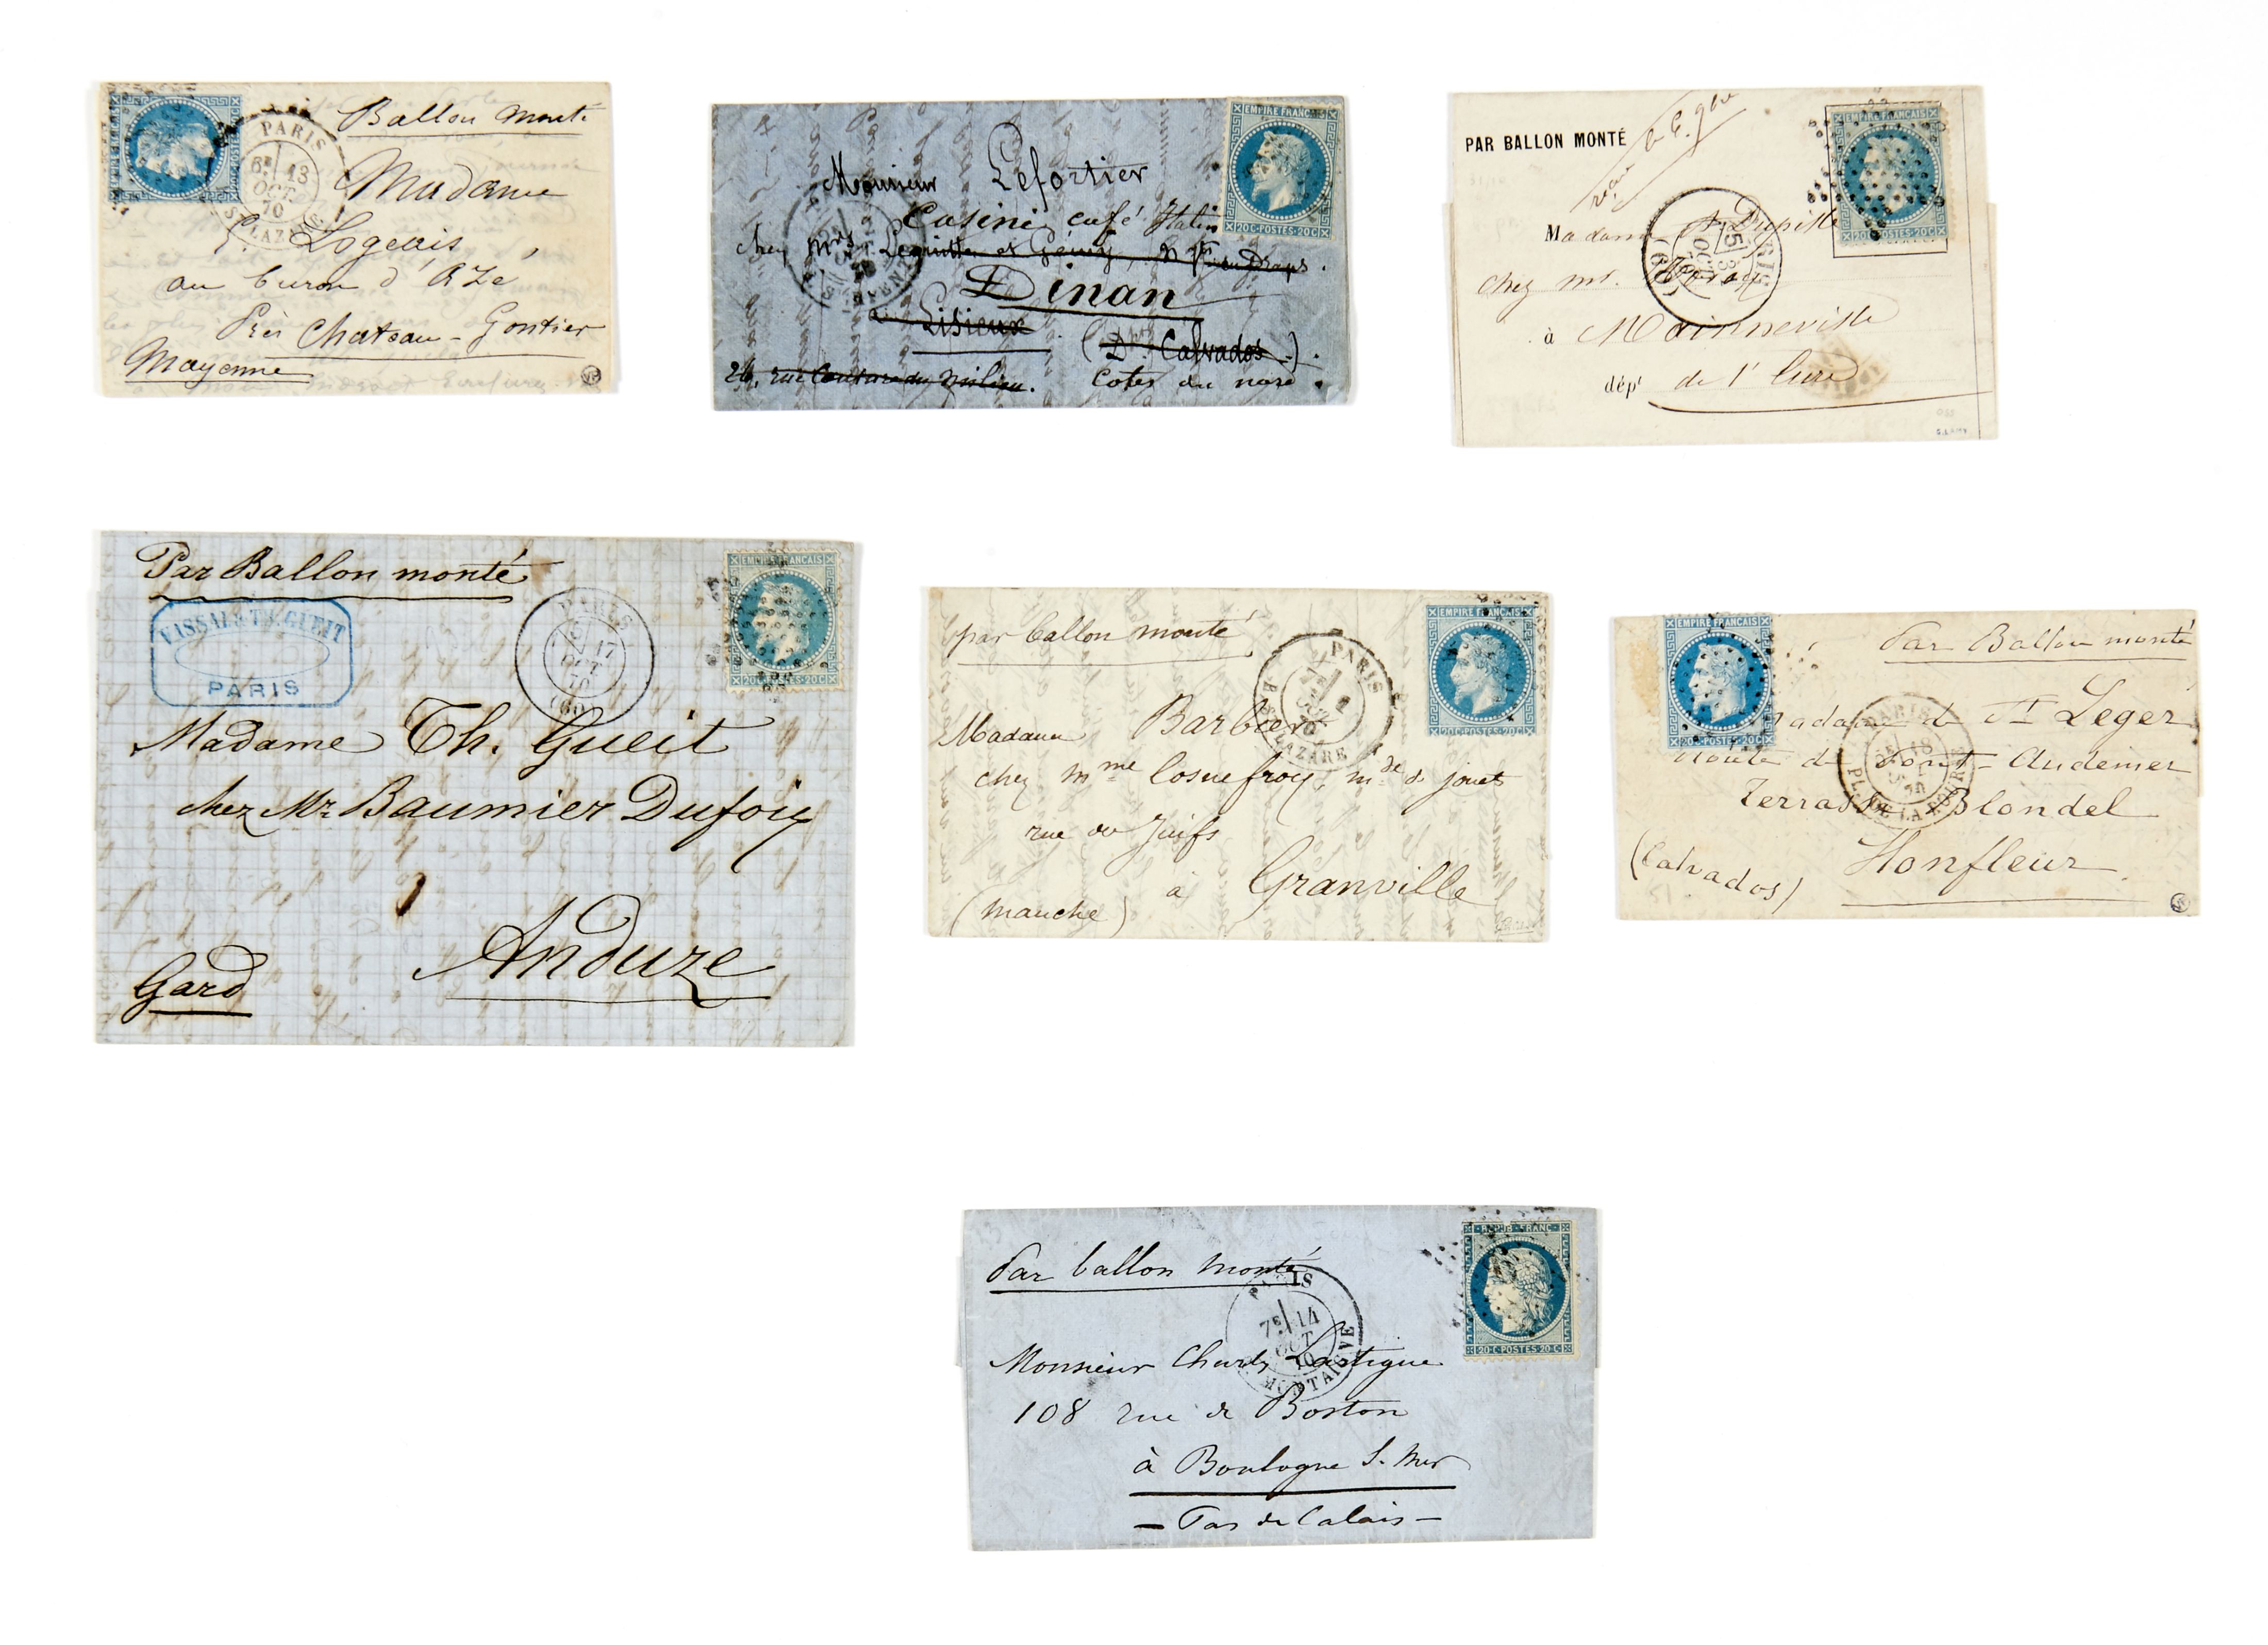 Ballon monté
PARIS
6E 13
OCT.
70
ST LAZARE
Madame
Logerais
au buron d'Azé
Près Chateau-Gontier
Mayenne
EMPIRE FRANÇAIS
20 C-POSTES-20 C
Monsieur Lefortier
Casini café Italin
chez Mrs
Dinan
à Lisieux
(Dt Calvados).
26, rue Couture du milieu. Cotes du nord
PAR BALLON MONTÉ
EMPIRE FRANÇAIS
Madame Dupille
OCT
(60)
chez mr.
à Mainneville
dépt de l'Eure
Par Ballon monté
EMPIRE FRANÇAIS
20 C-POSTES-20 C
VASSAL & TH. GUEIT
PARIS
PARIS
17
OCT
70
(60)
Madame Th. Gueit
chez Mr Baumier Dufoix
Anduze
Gard
par ballon monté
EMPIRE FRANÇAIS
20 C-POSTES-20 C
PARIS
ST LAZARE
Madame Barbier
chez mme Cosnefroy, mde de jouets
rue des Juifs
à Granville
(Manche)
EMPIRE FRANÇAIS
20 C-POSTES-20 C
Par Ballon monté
Madame de St Leger
PARIS
18
70
PL. DE LA BOURSE
Route de Pont-Audemer
Terrasse Blondel
Honfleur
(Calvados)
Par ballon monté
REPUB FRANC
20 C POSTES 20 C
PARIS
7E 14
OCT
70
MONTAIGNE
Monsieur Charles Lartigue
108 rue de Boston
à Boulogne S. Mer
- Pas de Calais -